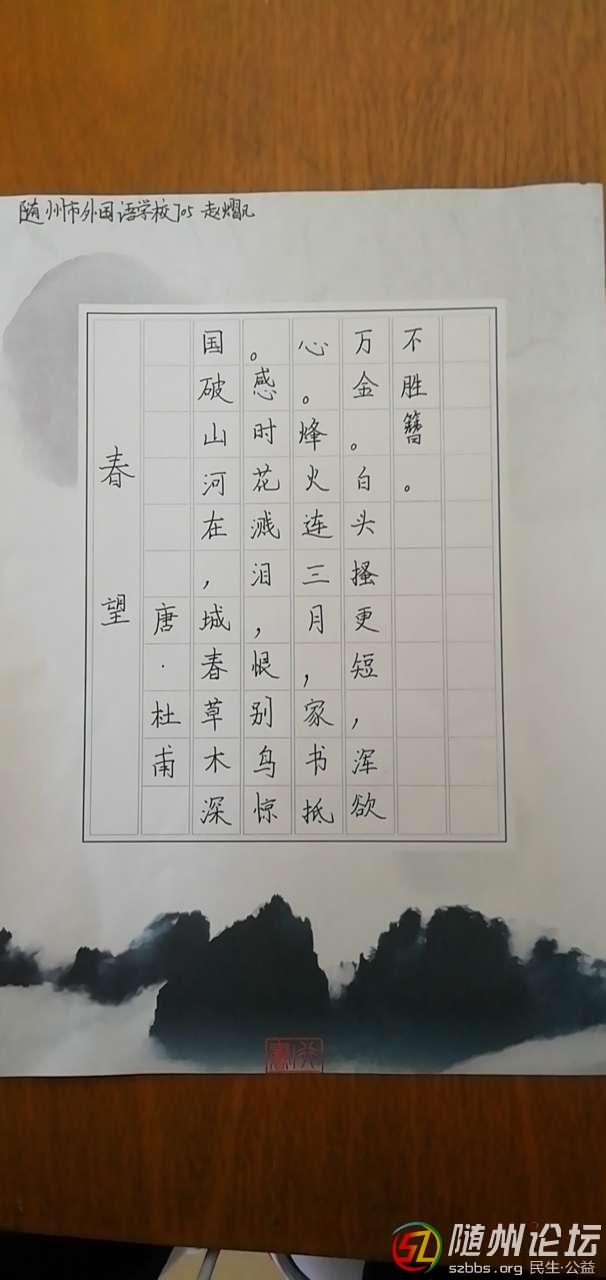 随州市外国语学校705 赵熠凡
春望
唐·杜甫
国破山河在，城春草木深
。感时花溅泪，恨别鸟惊
心。烽火连三月，家书抵
万金。白头搔更短，浑欲
不胜簪。
随州论坛
szbbs.org 民生·公益